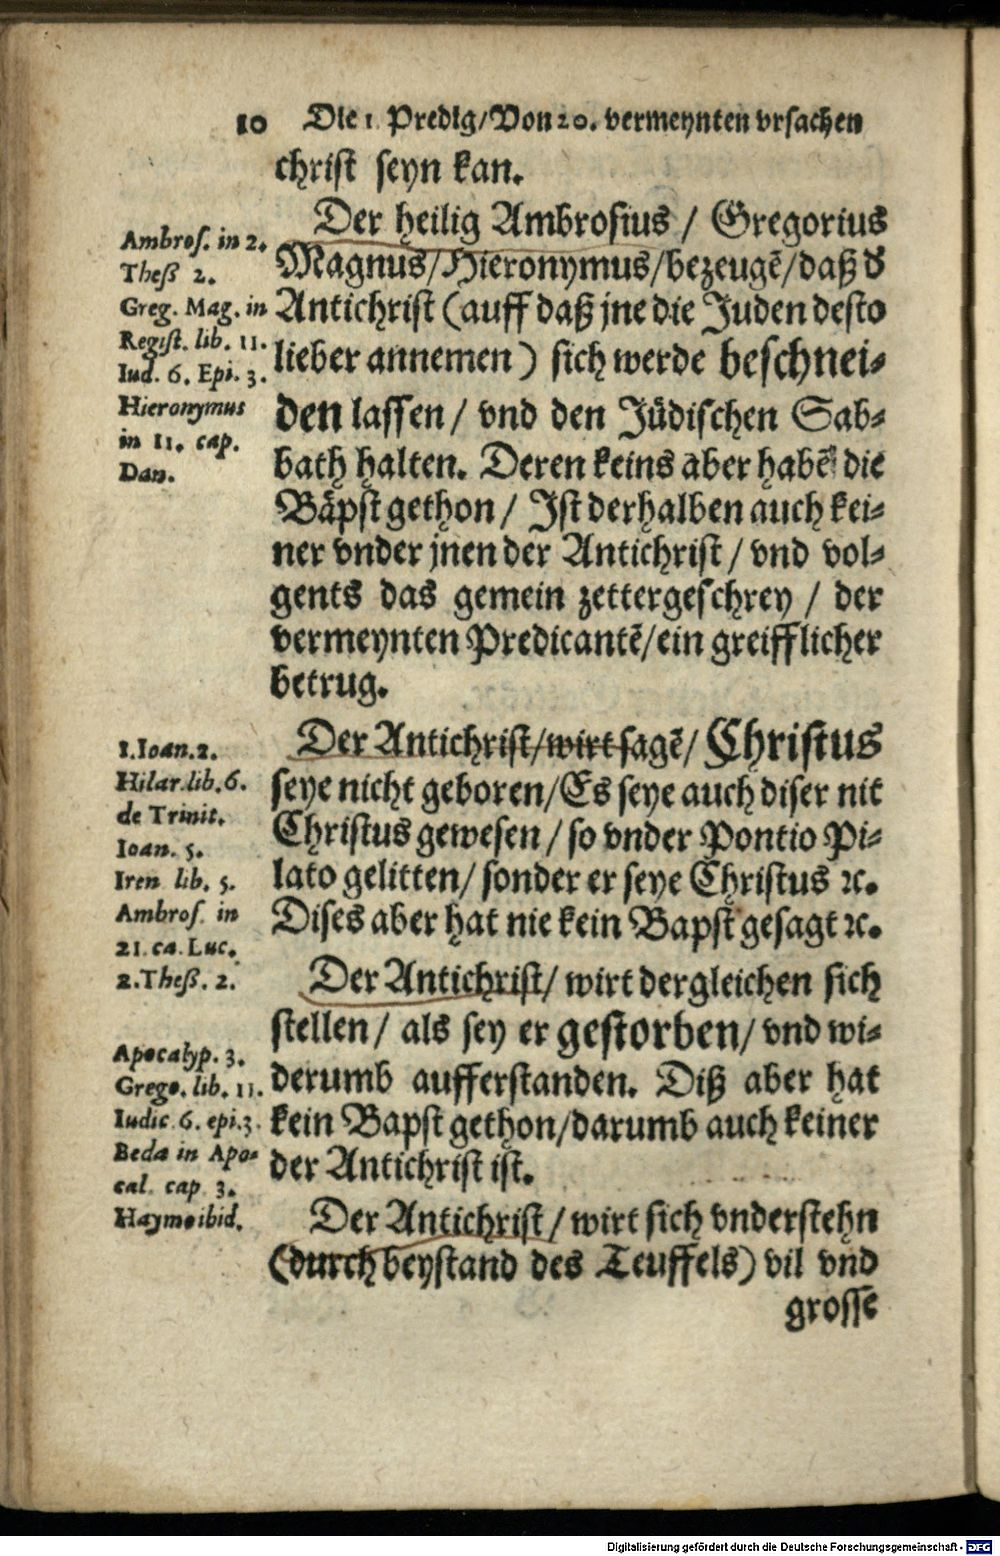 10 Die 1 Predig/Von 20. vermeynten vrsachen
christ seyn kan.
Der heilig Ambrosius / Gregorius
Magnus/Hieronymus/bezeugẽ/daß d̕
Antichrist (auff daß jne die Juden desto
lieber annemen) sich werde beschnei-
den lassen / vnd den Jüdischen Sab-
bath halten. Deren keins aber habẽ die
Bäpst gethon / Ist derhalben auch kei-
ner vnder jnen der Antichrist / vnd vol-
gents das gemein zettergeschrey / der
vermeynten Predicantẽ/ein greifflicher
betrug.
Ambros. in 2.
Theß 2.
Greg. Mag. in
Regist. lib. 11.
Iud. 6. Epi. 3.
Hieronymus
in 11. cap.
Dan.
Der Antichrist/wirt sagẽ/ Christus
seye nicht geboren/Es seye auch diser nit
Christus gewesen / so vnder Pontio Pi-
lato gelitten/ sonder er seye Christus ꝛc.
Dises aber hat nie kein Bapst gesagt ꝛc.
1. Ioan. 2.
Hilar. lib. 6.
de Trinit.
Ioan. 5.
Iren lib. 5.
Ambros. in
21. ca. Luc.
2. Theß. 2.
Der Antichrist/ wirt dergleichen sich
stellen / als sey er gestorben/ vnd wi-
derumb aufferstanden. Diß aber hat
kein Bapst gethon/darumb auch keiner
der Antichrist ist.
Apocalyp. 3.
Grego. lib. 11.
Iudic 6. epi. 3.
Beda in Apo-
cal. cap 3.
Haymo ibid.
Der Antichrist / wirt sich vnderstehn
(durch beystand des Teuffels) vil vnd
grosse
Digitalisierung gefördert durch die Deutsche Forschungsgemeinschaft - DFG